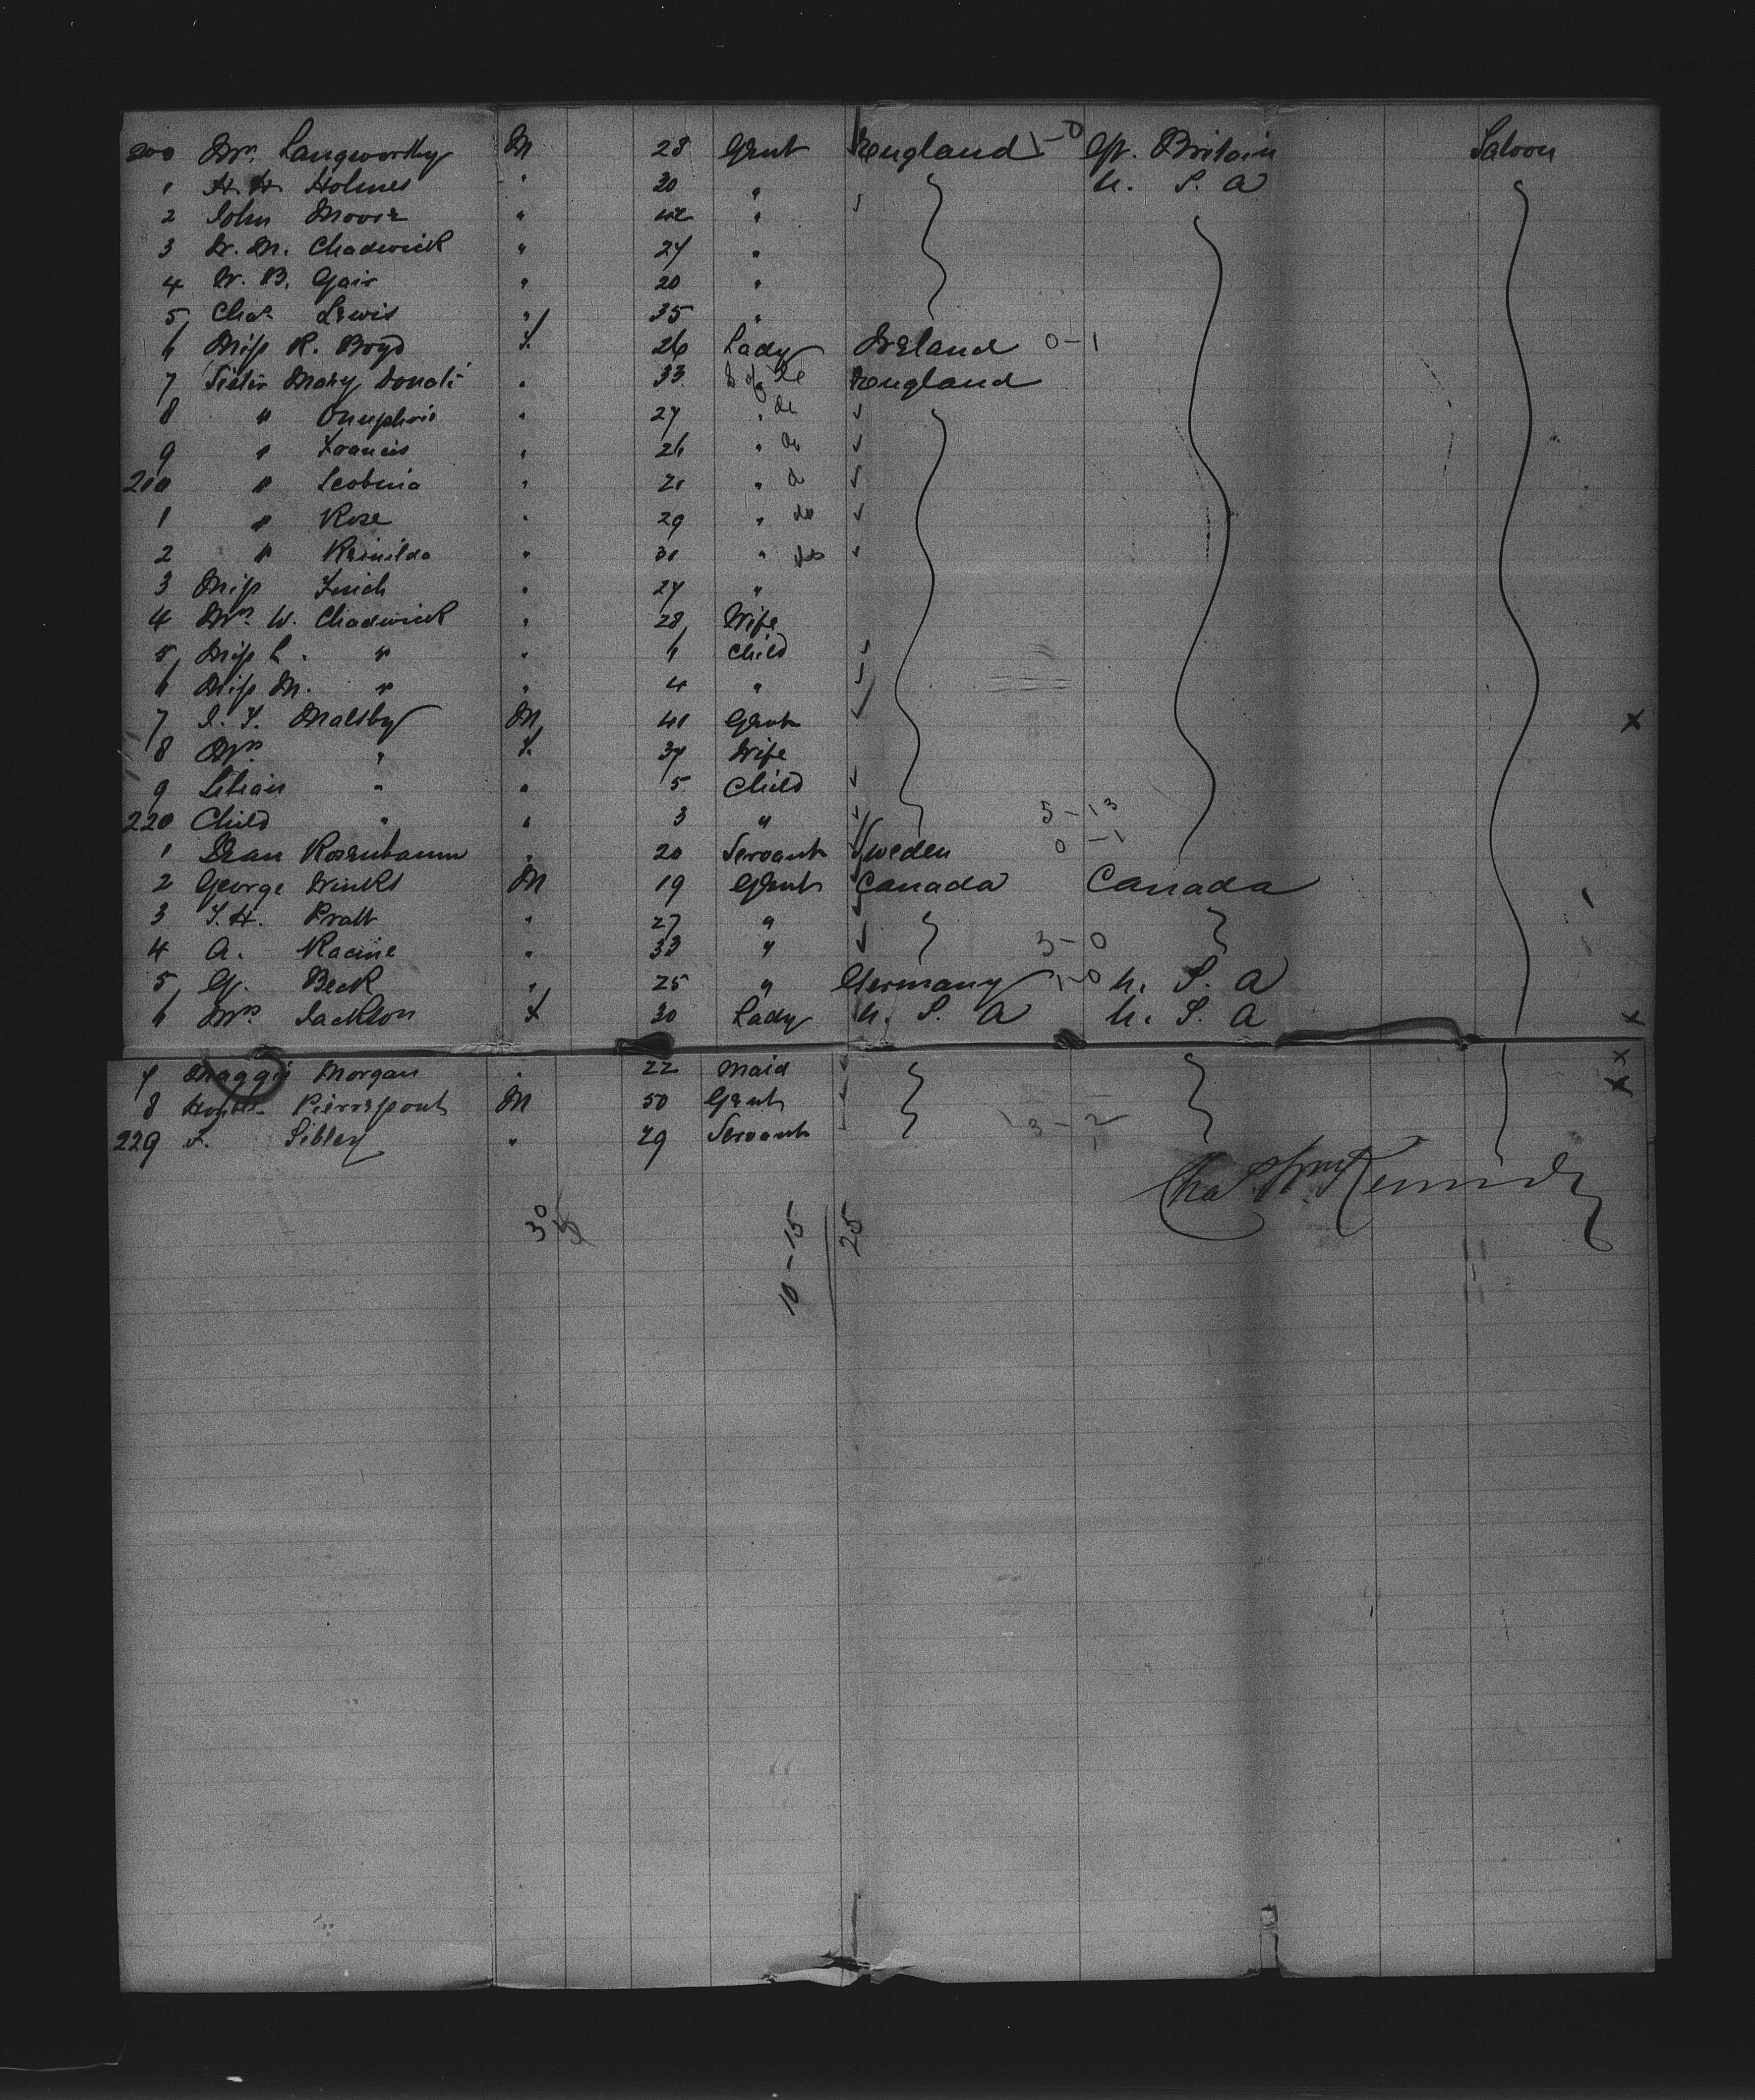 200 Mr. Langworthy M 28 Gent England 1-0 Gt. Britain Saloon
1 H H Holmes " 30 " U. S. A
2 John Moore " 42 "
3 W. M. Chadwick " 27 "
4 W. B. Gair " 20 "
5 Chas. Lewis " 35 "
6 Miss R. Boyd F. 26 Lady Ireland 0-1
7 Sister Mary Donati " 33 England
8 " Onuphrio " 27 "
9 " Francis " 26 " do
210 " Scobina " 21 "
1 " Rose " 29 " do
2 " Reinilda " 31 " do
3 Miss " 27 "
4 Mrs. W. Chadwick " 28 Wife
5 Miss L. " " 6 Child
6 Miss M. " " 4 "
7 J. T. Maltby M 41 Gent X
8 Mrs " F. 37 Wife
9 Lilian " " 5 Child
220 Child " " 3 " 5-13
1 Rosenbaum " 20 Servant Sweden 0-1
2 George Winks M 19 Gent Canada Canada
3 T. H. Pratt " 27 "
4 A. Racine " 33 " 3-0
5 G. Beck " 25 " Germany 1-0 U. S. A
6 Mrs. Jackson F 30 Lady U. S. A U. S. A X
7 Maggie Morgan " 22 Maid X
8 Pierrepont M 50 Gent X
229 F. Sibley " 29 Servant 3-2
Chas. Wm. Kennedy
30
10-15
25